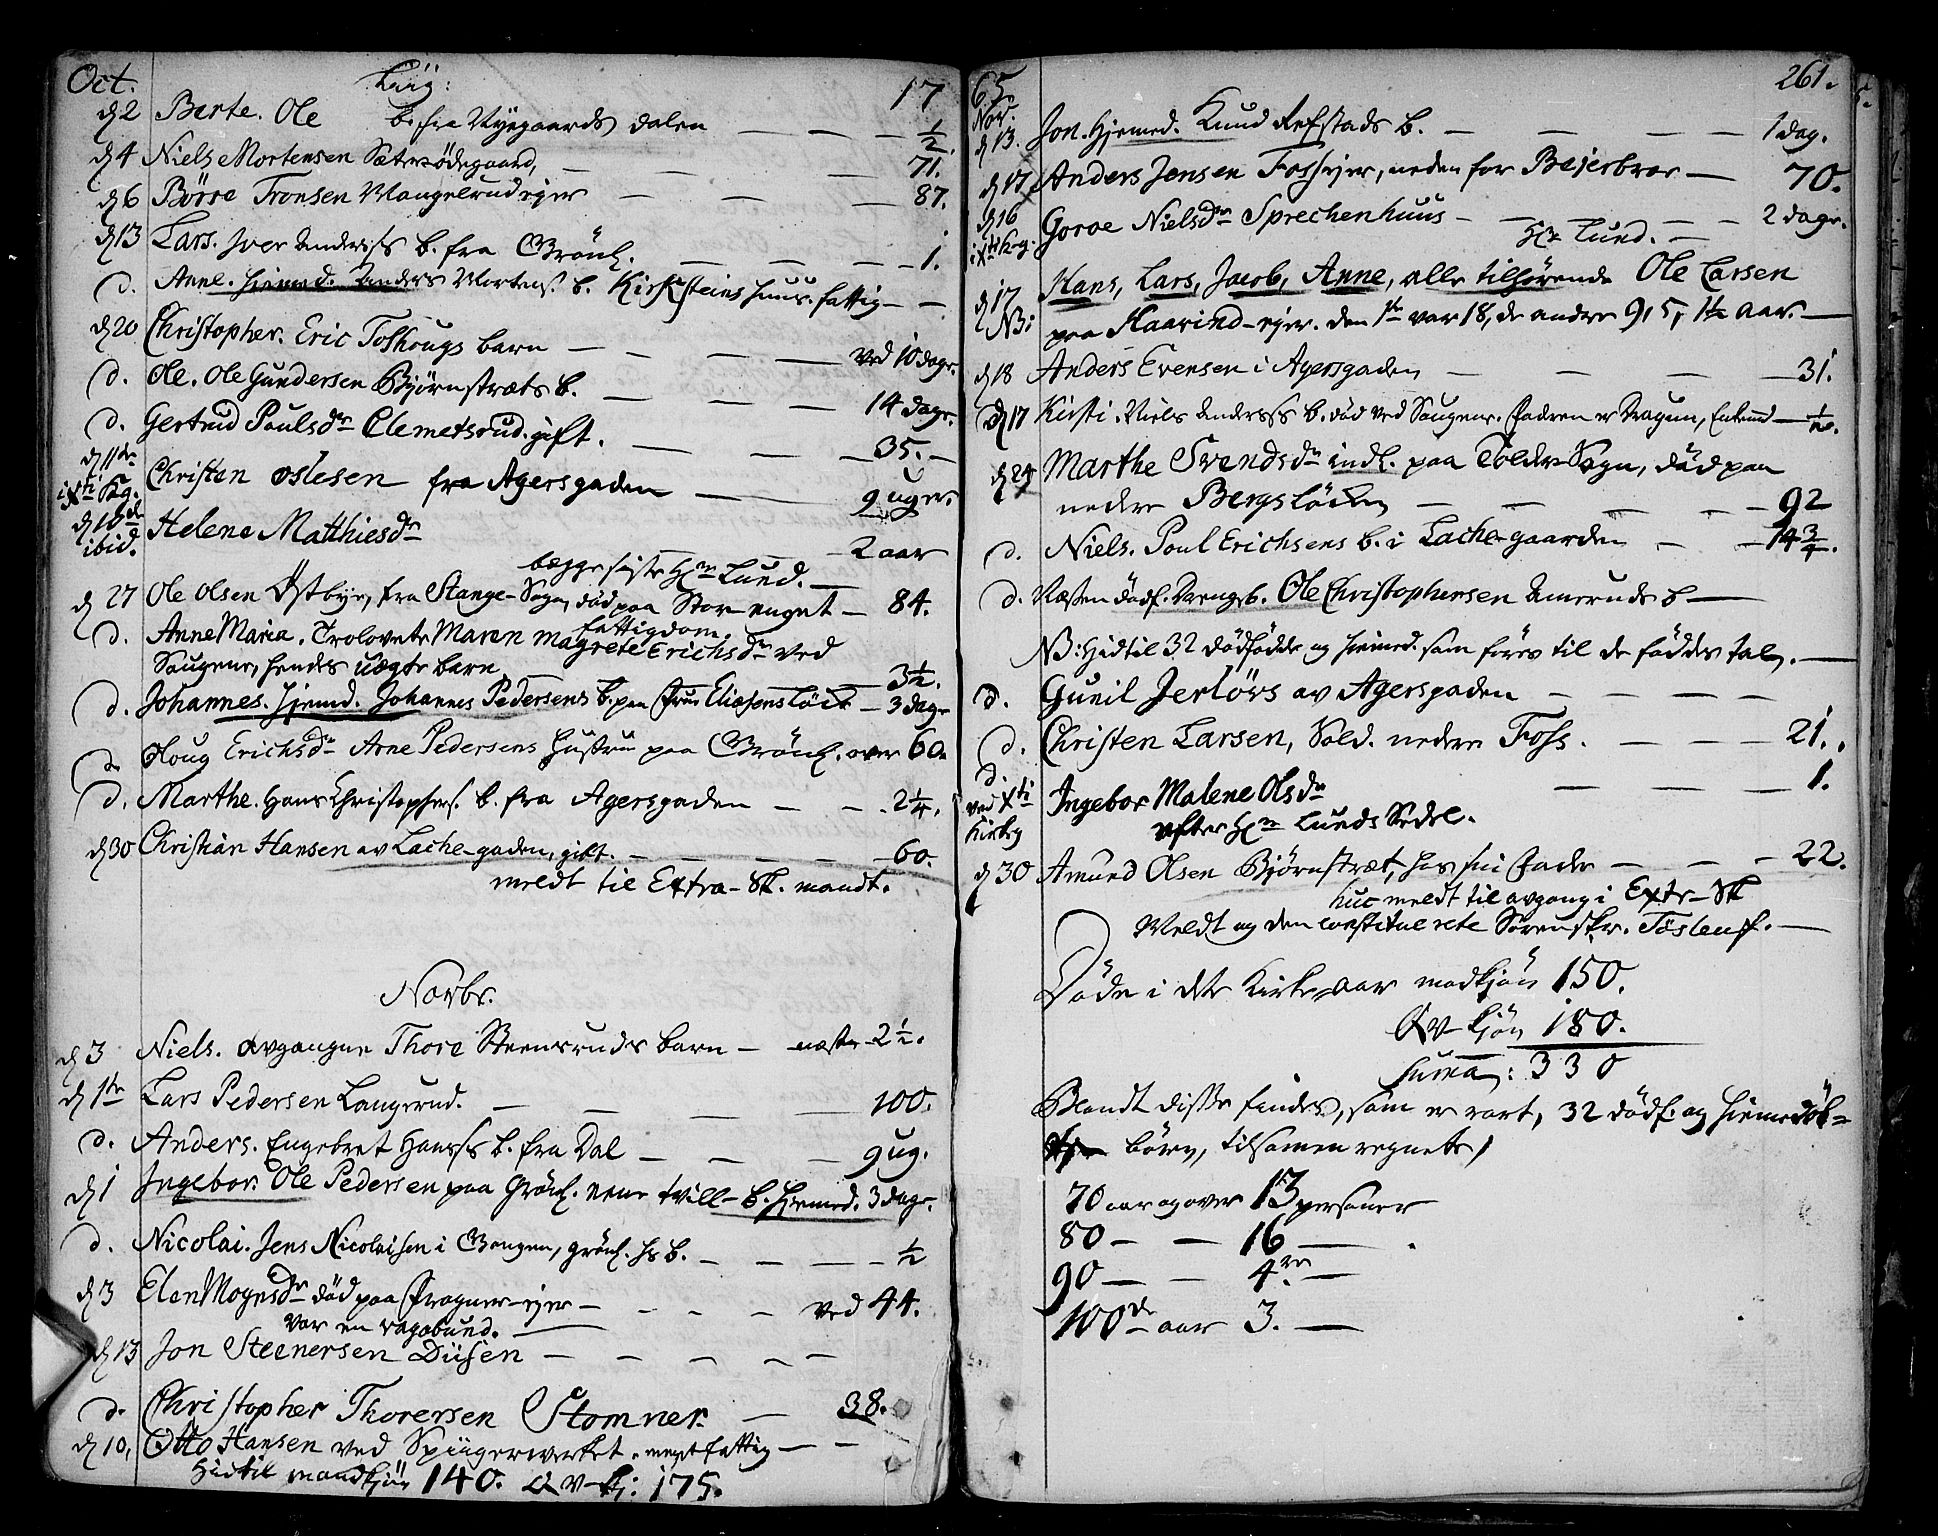 Oct. Liig: 17
d 2 Berte. Ole b. fra Nyegaards dalen — — — ½
d 4 Niels Mortensen Sætersødegaard, — — — 71.
d 6 Börre Tronsen Mangelrud eyer — — — 87.
d 13 Lars. Iver Anderss b. fra Grönl. — — — 1.
d. Anne. hiemd. Anders Mortens. b. Kirkesteins huus. fattig — —
d 20 Christopher. Eric Tofthougs barn — — — ved 10 dage.
d. Ole. Ole Gundersen Bjørnstræts b. — — — 14 dage.
d. Gertrud Poulsdr Clemetsrud. gift. — — — 35. —
d 11te i Xti Kg. Christen Oslesen fra Agersgaden — — 9 uger.
d 10de ibid. Helene Matthiesdr — 2 aar
begge siste Hr Lund. —
d 27 Ole Olsen Östbye, fra Stange-Sogn, död paa Stor enget — 84.
fattigdom.
d. Anne Maria. Trolovete Maren Magrete Erichsdr ved
Saugene, hendes uægte barn — — 3½.
d. Johannes. hjemd. Johannes Pedersens b. paa Frue Eliesens löck — 3 dage
d. Houg Erichsdr Arne Pedersens Hustru paa Grönl. over 60.
d. Marthe. Hans Christophers. b. fra Agersgaden — — 2¼.
d 30 Christian Hansen av Lache-gaden, gift. — — — 60.
meldt til Extra-Sk. mandt.
Novbr.
d 3 Niels. avgangne Thore Steensruds barn — næste 2½.
d 1te Lars Pedersen Langerud. — — — 100.
d. Anders. Engebret Hanss b. fra Dal — — — 9 ug.
d 1 Ingebor. Ole Pedersen paa Grönl. eene tvill-b. hjemed. 3 dage.
d. Nicolai. Jens Nicolaisen i Gangen, grönl. hs b. — — — ½
d 3 Elen Mognsdr död paa Frogner-eyer — — — ved 44.
var en vagabund. —
d 13 Jon Steenersen Diisen — — — —
d. Christopher Thorersen Stomner. — 38.
d 10, Otto Hansen ved Spiigerverket. meget fattig — —
Hidtil mandkjön 140. Qv-kj: 175.
65. 261.
Nov.
d 13. Jon. hjemed. Knud Refstads b. — — — 1 dag.
d 17 Anders Jensen Foss eyer, neden for Bejerbroe — 70.
d 16 i Xti Kg: Goroe Nielsdr Sprechenhuus — — — 2 dage.
Hr Lund. —
d 17 Hans, Lars, Jacob, Anne, alle tilhörende Ole Larsen
NB: paa Haarind-eyer. den 1te var 18, de andre 9, 5, 1½ aar. —
d 18 Anders Evensen i Agersgaden — — — 31.
d 17 Kirsti. Niels Anderss b. död ved Saugene. Fadren er Dragun, Enkemd — ½.
d 24 Marthe Svendsdr indl. paa Tolder Sogn, död paa
nedre Bergslöcken — — — 92
d. Niels. Poul Erichsens b. i Lache-gaarden — — 1¾.
d. Næsten dödf. Drengeb. Ole Christophersen Amruds b —
NB: hidtil 32 dödfödde og hiemed. som föres til de föddes tal. —
d. Gunil Jerlövs av Agersgaden — — — —
d. Christen Larsen, Sold. nedre Foss. — — — 21.
d. ved Xti Kirkeg Ingebor Malene Olsdr — — — 1.
efter Hr Lunds Sedel.
d 30 Amund Olsen Bjørnstræt, hos sin Fader — — — 22.
huc meldt til avgang i Extr-Sk
Meldt og den constituerete Sorenskr. Töslenf. —
Döde i dete Kirke-aar mandkjön 150.
Qv-kjön 180.
Summa: 330
Blandt disse findes, som er rart, 32 dödf. og hiemedöb-
börn, tilsamen regnete,
70 aar og over 13 personer
80 — — 16 —
90 — — 4re. —
100de aar 3. —